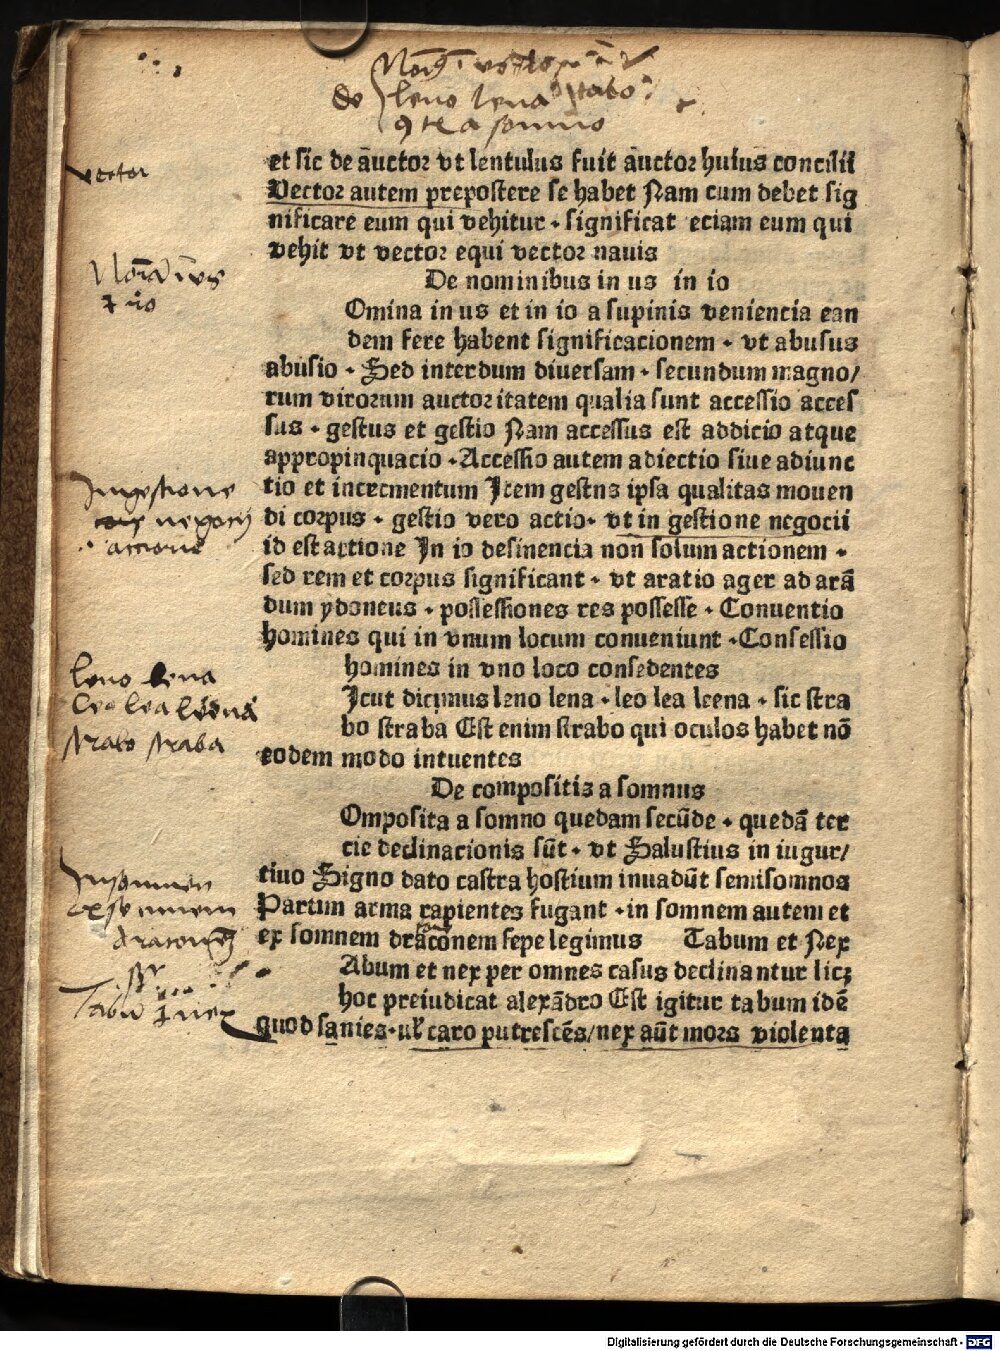 de leno lena strabo
vector
et sic de auctor vt lentulus fuit auctor huius concilii
Vector autem prepostere se habet Nam cum debet sig
nificare eum qui vehitur · significat eciam eum qui
vehit vt vector equi vector nauis
De nominibus in us in io
Omina in us et in io a supinis veniencia ean
dem fere habent significacionem · vt abusus
abusio · Sed interdum diuersam · secundum magno/
rum virorum auctoritatem qualia sunt accessio acces
sus · gestus et gestio Nam accessus est addicio atque
appropinquacio · Accessio autem adiectio siue adiunc
tio et incrementum Item gestus ipsa qualitas mouen
di corpus · gestio vero actio · vt in gestione negocii
id est actione In io desinencia non solum actionem ·
sed rem et corpus significant · vt aratio ager ad arā
dum ydoneus · possessiones res possesse · Conuentio
homines qui in vnum locum conueniunt · Consessio
homines in vno loco consedentes
Icut dicimus leno lena · leo lea leena · sic stra
bo straba Est enim strabo qui oculos habet nō
eodem modo intuentes
De compositis a somnus
Omposita a somno quedam secūde · quedā ter
cie declinacionis sūt · vt Salustius in iugur/
tino Signo dato castra hostium inuadūt semisomnos
Partim arma capientes fugant · in somnem autem et
ex somnem dracōnem sepe legimus Tabum et Nex
Abum et nex per omnes casus declinantur licꝫ
hoc preiudicat alexādro Est igitur tabum idē
quod sanies · ul caro putrescēs/nex aūt mors violenta
In gestione
negocij
· actione
leno lena
Leo lea leena
strabo straba
Insomnem
exsomnem
draconem
Tabū nex
Digitalisierung gefördert durch die Deutsche Forschungsgemeinschaft - DFG